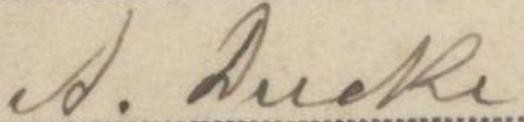 A. Ducke